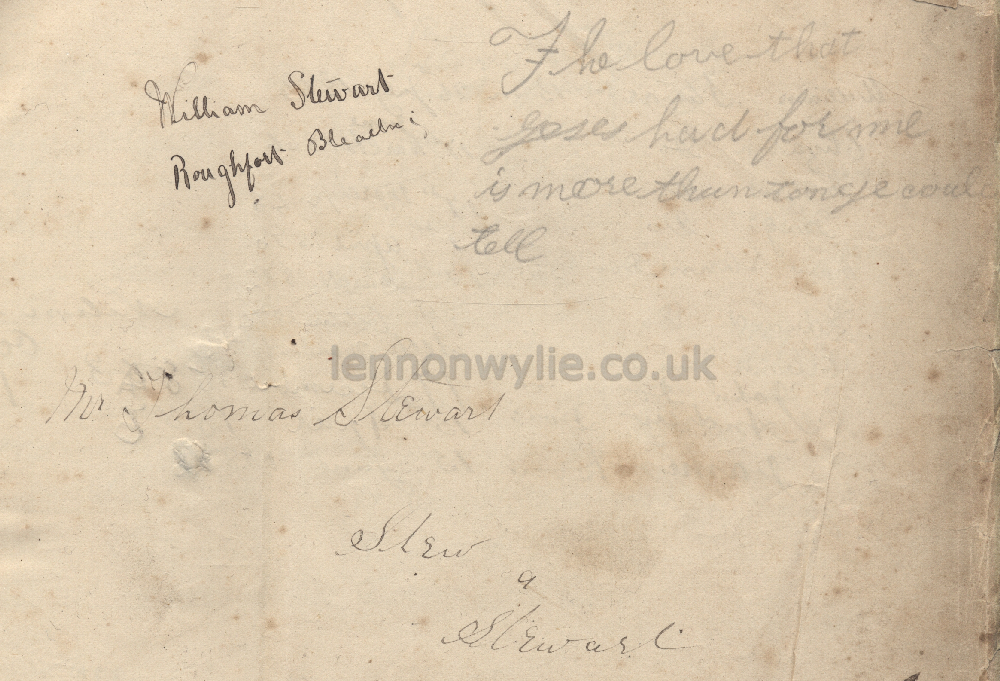 William Stewart
Roughfort
The love that
goses had for me
is more than tonge could
tell
lennonwylie.co.uk
Mr Thomas Stewart
Stew
a
Stewart